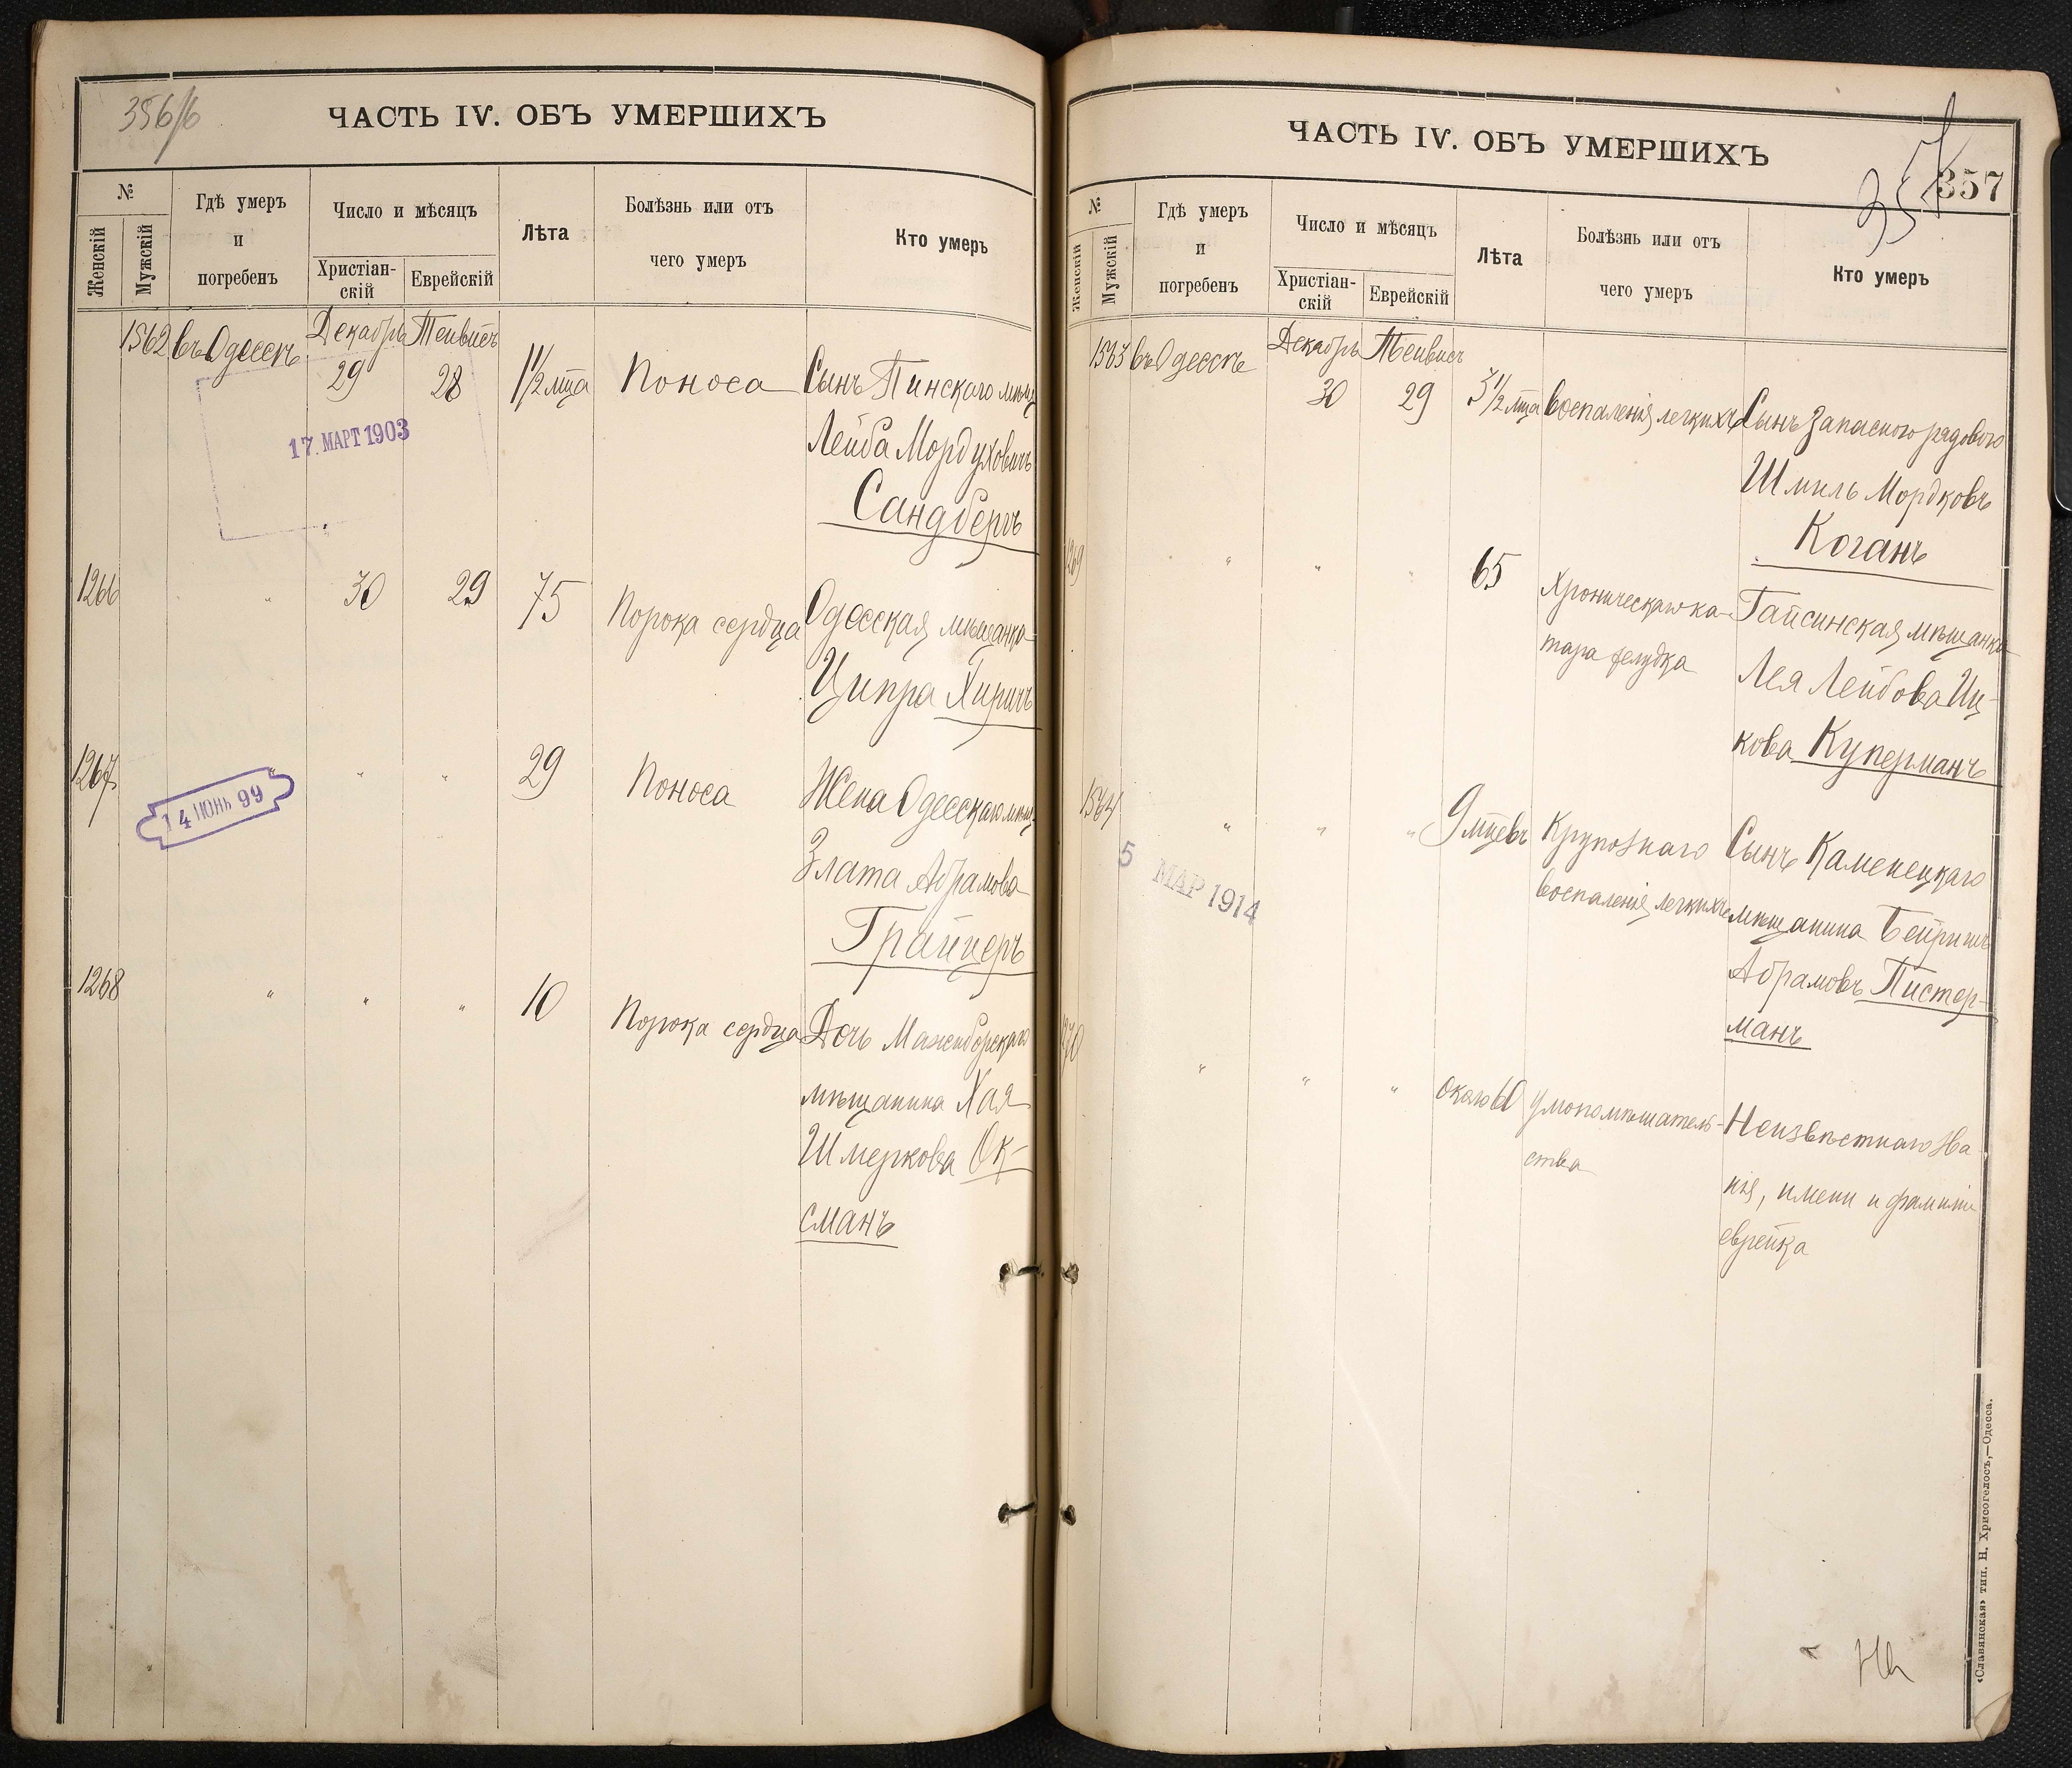 356/б
ЧАСТЬ IV. ОБЪ УМЕРШИХЪ
№
Женскій
Мужскій
Гдѣ умеръ
и
погребенъ
Число и мѣсяцъ
Христіан-
скій
Еврейскій
Лѣта
Болѣзнь или отъ
чего умеръ
Кто умеръ
1562 въ Одессѣ Декабрь Тейвис
29 28 1 1/2 мца Поноса Сынъ Пинскаго мѣщ
Лейба Мордуховичъ
Сандберъ
17. МАРТ 1903
1266 " 30 29 75 Порока сердца Одесская мѣщанка
Ципра Хиричъ
1267 " " " 29 Поноса Жена Одесскаго мѣщ.
Злата Абрамова
Грайцеръ
14 ІЮНЬ 99
1268 " " " 10 Порока сердца Дочь Межиборскаго
мѣщанина Хая
Шмеркова Ок-
сманъ
ЧАСТЬ IV. ОБЪ УМЕРШИХЪ
357
357
№
Женскій
Мужскій
Гдѣ умеръ
и
погребенъ
Число и мѣсяцъ
Христіан-
скій
Еврейскій
Лѣта
Болѣзнь или отъ
чего умеръ
Кто умеръ
1563 въ Одессѣ Декабрь Тейвис
30 29 3 1/2 мца Воспаленія легкихъ Сынъ запасного рядового
Шмиль Мордковъ
Коганъ
1269 " " " 65 Хроническаго ка-
тара желудка
Гайсинская мѣщанка
Лея Лейбова Иц-
кова Куперманъ
1564 " " " 9 мцевъ Крупознаго
воспаленія легкихъ
Сынъ Каменецкаго
мѣщанина Бейришъ
Абрамовъ Пистер-
манъ
5 МАР 1914
1270 " " " около 60 умопомѣшатель-
ства
Неизвѣстнаго зва-
нія, имени и фамиліи
еврейка
«Славянская» тип. Н. Хрисогелосъ,—Одесса.